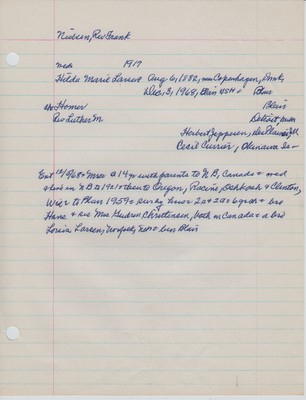 Nielsen, Rev Frank
wed 1917
Hilda Marie Larsen Aug 6, 1882, near Copenhagen, Dmk,
Dec, 3, 1968, Blair
Homer Blair
Rev Luther M. Detroit
Herbert Jeppesen, Des Plaines Ill
Cecil Currier, Okinawa
Ent 12/1968 @ 14 yr with parents to N B, Canada & wed
& live in N B to 1921 & then to Oregon, Racine, Oshkosh & Clinton,
Wis & to Blair 1959 & Surv by husb 2s & 2d & 6 grch & bro
Hans & sis Mrs Gudrun Christensen, both in Canada & a bro
Larsen, Norfolk, Nebr & bur Blair